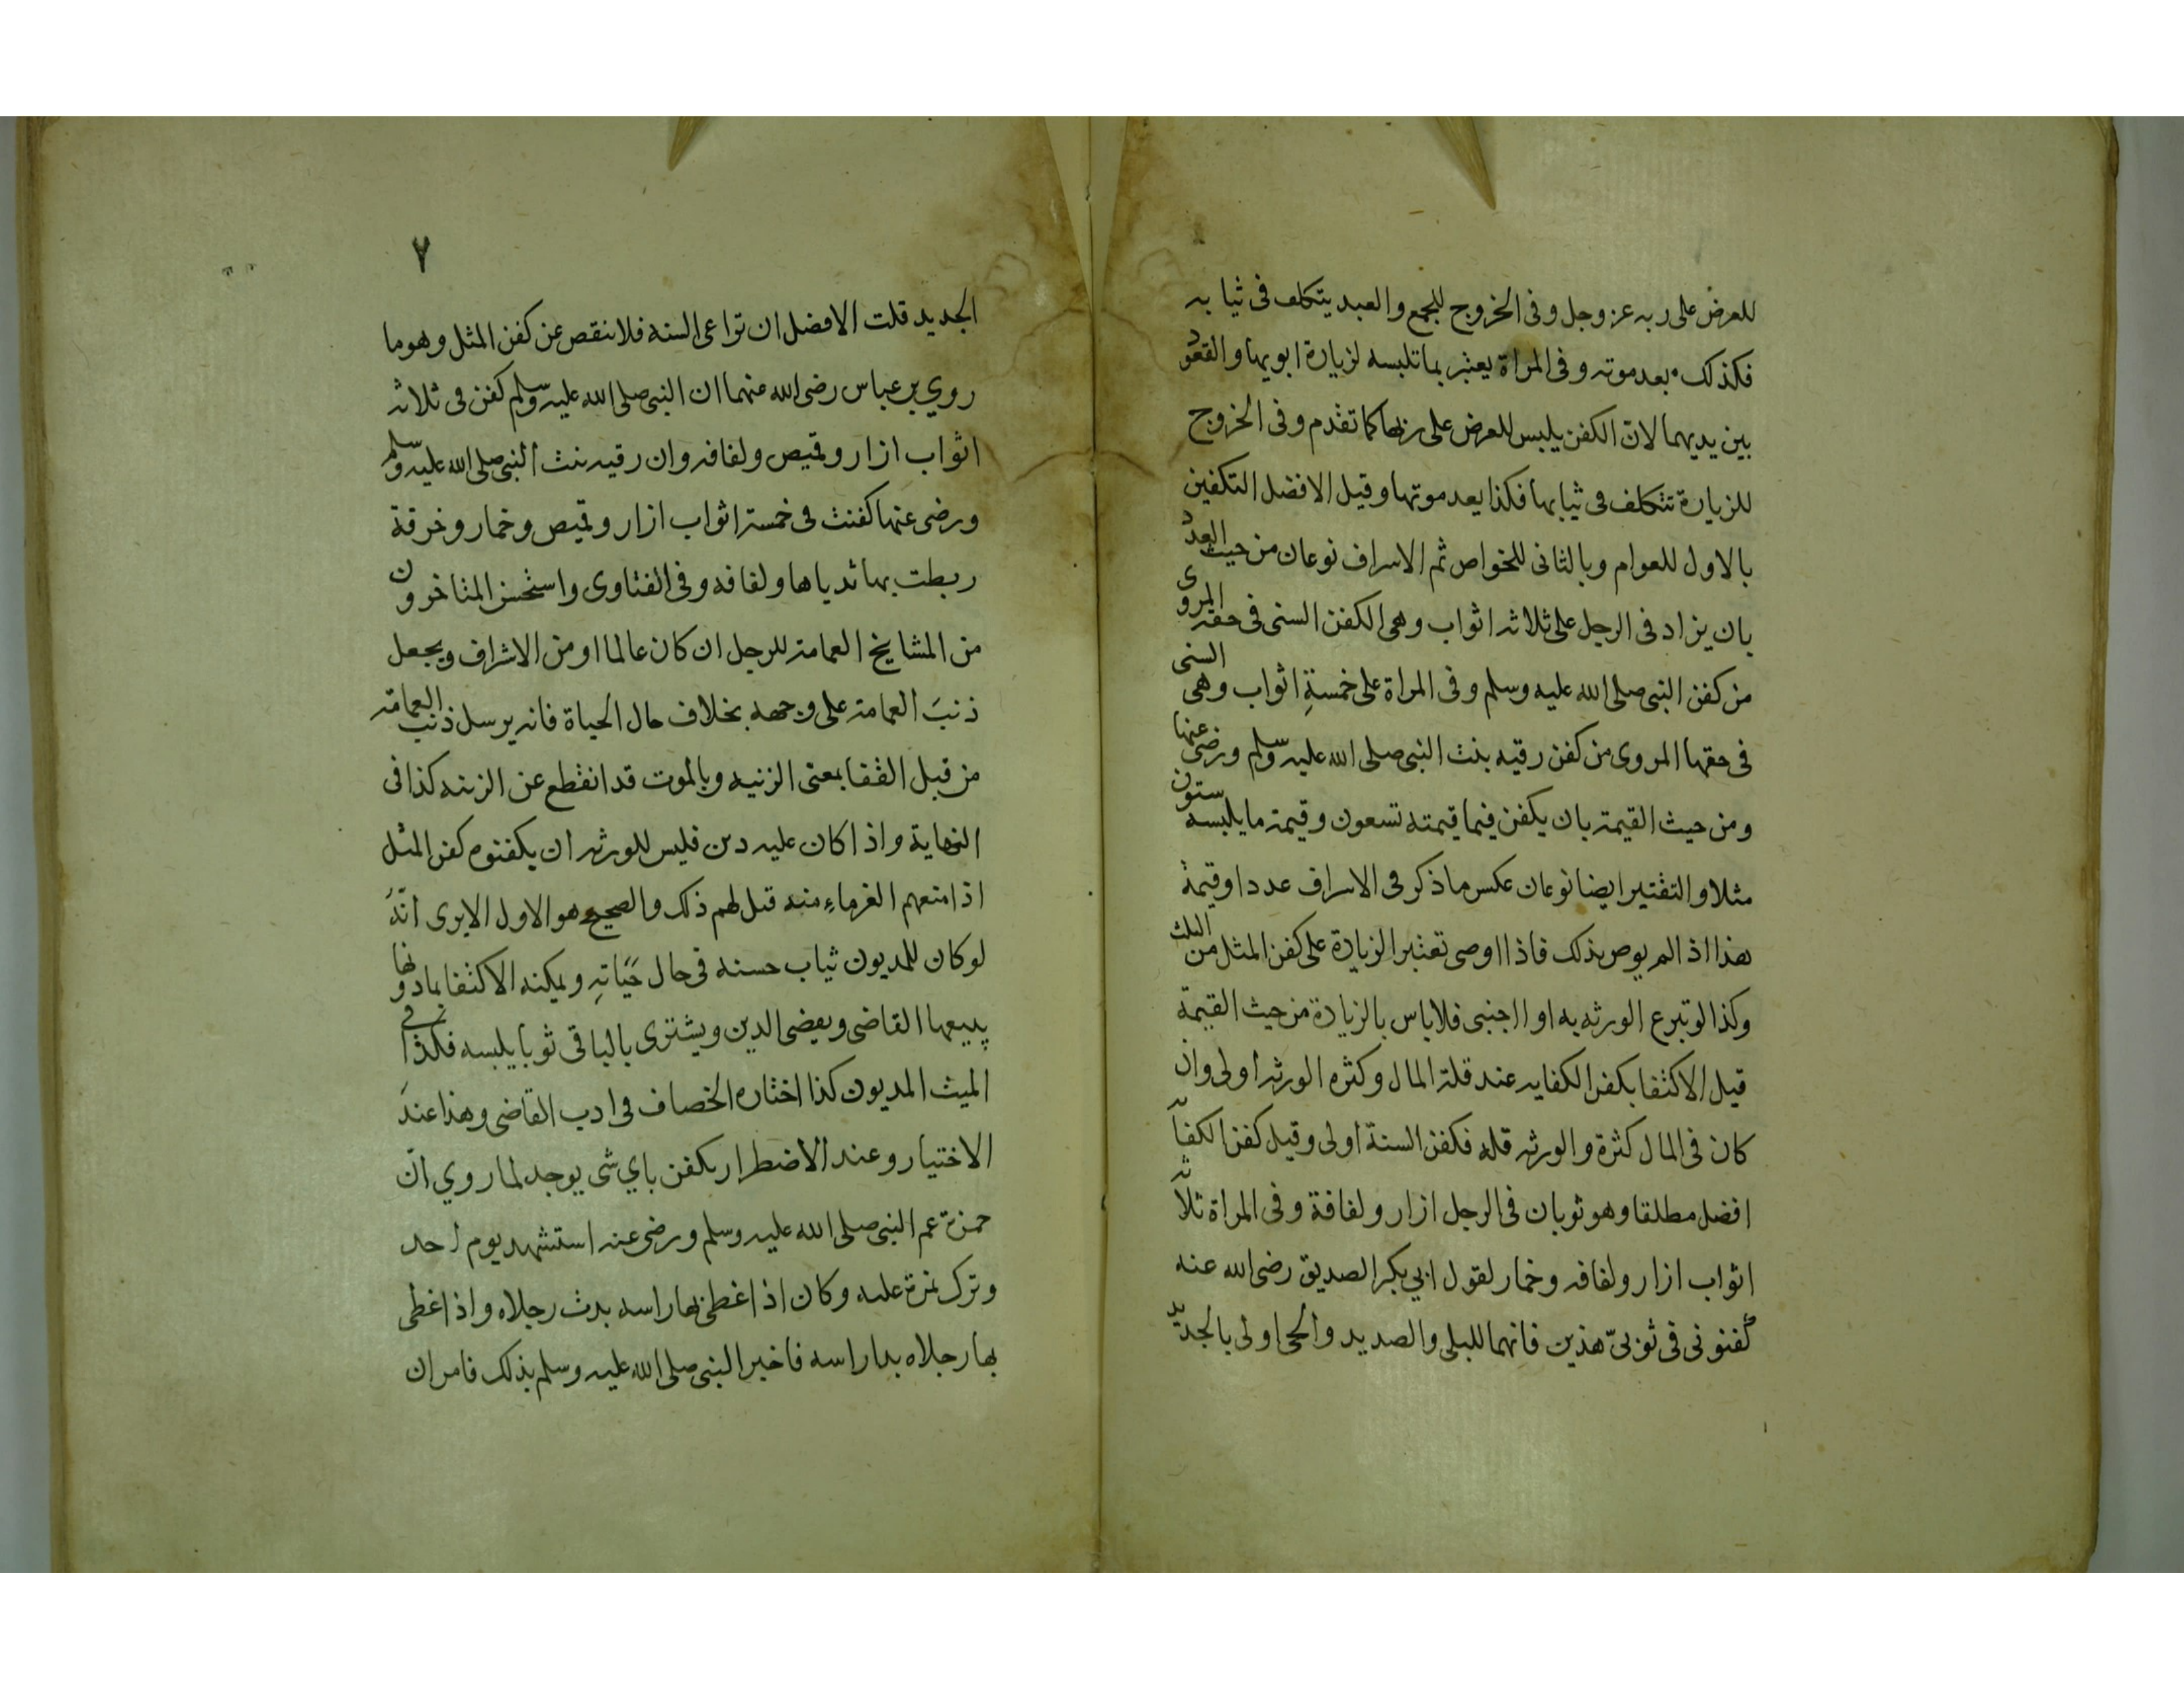 للعرض على ربه عز وجل وفى الخروج للجمع والعيد يتكلف فى ثيابه
فكذلك بعد موته وفى المراة يعتبر بما تلبسه لزيارة ابويها والقعود
بين يديهما لان الكفن يلبس للعرض على ربها كما تقدم وفى الخروج
للزيارة تتكلف فى ثيابها فكذا بعد موتها وقيل الافضل التكفين
بالاول للعوام وبالثانى للخواص ثم الاسراف نوعان من حيث العدد
بان يزاد فى الرجل على ثلاثه اثواب وهى الكفن السنى فى حقه المروى
من كفن النبى صلى الله عليه وسلم وفى المراة على خمسةِ اثواب وهى السنى
فى حقها المروى من كفن رقيه بنت النبى صلى الله عليه وسلم ورضى عنها
ومن حيث القيمة بان يكفن فيما قيمته تسعون وقيمة ما يلبسه ستون
مثلا والتقتير ايضا نوعان عكس ما ذكر فى الاسراف عددا وقيمة
هذا اذا لم يوص بذلك فاذا اوصى تعتبر الزيادة على كفن المثل من الثلث
وكذا لو تبرع الورثه به او اجنبى فلا باس بالزيادة من حيث القيمة
قيل الاكتفا بكفن الكفايه عند قلة المال وكثره الورثه اولى وان
كان فى المال كثرة والورثه قله فكفن السنة اولى وقيل كفن الكفاية
افضل مطلقا وهو ثوبان فى الرجل ازار ولفافة وفى المراة ثلاثه
اثواب ازار ولفافه وخمار لقول ابي بكر الصديق رضى الله عنه
كفنونى فى ثوبىّ هذين فانهما للبلى والصديد والحى اولى بالجديد
٧
الجديد قلت الافضل ان تراعى السنه فلا ننقص عن كفن المثل وهو ما
روي بن عباس رضى الله عنهما ان النبى صلى الله عليه وسلم كفن فى ثلاثه
اثواب ازار وقميص ولفافه وان رقيه بنت النبى صلى الله عليه وسلم
ورضى عنها كفنت فى خمسة اثواب ازار وقميص وخمار وخرقة
ربطت بها ثدياها ولفافه وفى الفتاوى واستحسن المتاخرون
من المشايخ العمامة للرجل ان كان عالما او من الاشراف ويجعل
ذنبَ العمامة على وجهه بخلاف حال الحياة فانه يرسل ذنب العمامة
من قبل القفا بمعنى الزنيه وبالموت قد انقطع عن الزينه كذا فى
النهاية واذا كان عليه دين فليس للورثه ان يكفنوه كفن المثل
اذا منعهم الغرماء منه قبل لهم ذلك والصحيح هو الاول الا يرى انّهُ
لو كان للمديون ثياب حسنه فى حال حيَاتهِ ويمكنه الاكتفا بما دونها
يبيعها القاضى ويقضى الدين ويشترى بالباقى ثوبا يلبسه فكذا فى
الميت المديون كذا اختاره الخصاف فى ادب القاضى وهذا عندَ
الاختيار وعند الاضطرار يكفن باي شى يوجد لما روي انّ
حمزة عم النبى صلى الله عليه وسلم ورضى عنه استشهد يوم احد
وترك نمرة عليه وكان اذا غطى بها راسه بدت رجلاه واذا غطى
بها رجلاه بدا راسه فاخبر النبى صلى الله عليه وسلم بذلك فامر ان